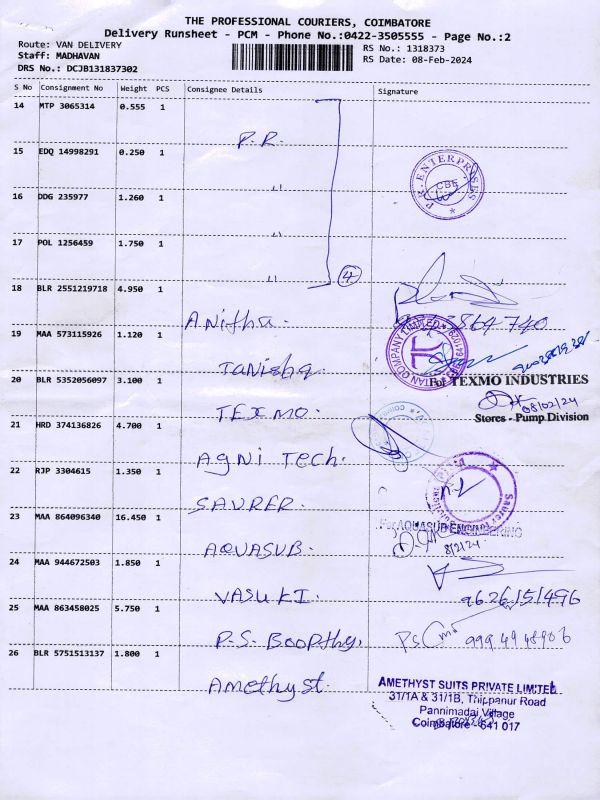 THE PROFESSIONAL COURIERS, COIMBATORE
Delivery Runsheet - PCM - Phone No.:0422-3505555 - Page No.:2
Route: VAN DELIVERY
RS No.: 1318373
Staff: MADHAVAN
RS Date: 08-Feb-2024
DRS No.: DCJB131837302
S No Consignment No Weight PCS Consignee Details Signature
14 MTP 3065314 0.555 1
P.R.
15 EDQ 14998291 0.250 1
P.R. ENTERPRISES
CBE
16 DDG 235977 1.260 1
"
17 POL 1256459 1.750 1
"
"
4
18 BLR 2551219718 4.950 1
Anitha
19 MAA 573115926 1.120 1
TITAN COMPANY LIMITED
Tanishq
20 BLR 5352056097 3.100 1
For TEXMO INDUSTRIES
08/02/24
TEXMO.
Stores - Pump Division
21 HRD 374136826 4.700 1
Agni Tech.
22 RJP 3304615 1.350 1
SAURER.
Saurer
23 MAA 864096340 16.450 1
For AQUASUB ENGINEERING
8/2/24
AQUASUB.
24 MAA 944672503 1.850 1
VASUKI.
9626151496
25 MAA 863458025 5.750 1
P.S. Boopthy.
9994948906
26 BLR 5751513137 1.800 1
Amethyst.
AMETHYST SUITS PRIVATE LIMITED
31/1A & 31/1B, Thippanur Road
Pannimadai Village
Coimbatore - 641 017